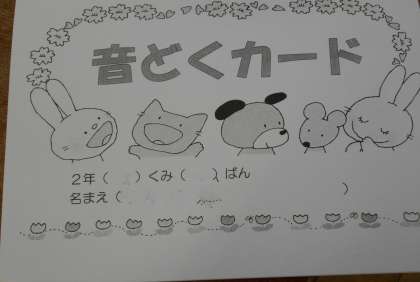 音どくカード
2年( )くみ( )ばん
名まえ( )